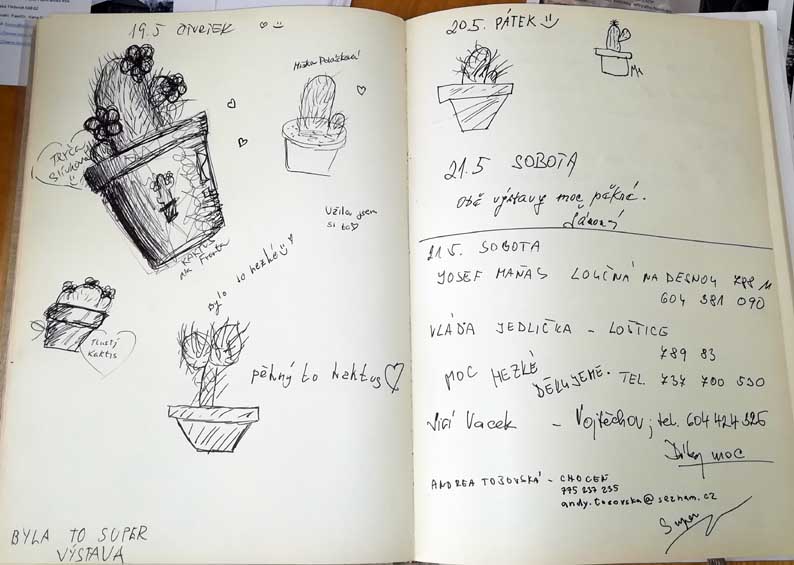 19.5 ČTVRTEK
Miška Poláčková!
KAKTUS
na
Užila jsem
si to
bylo to hezké
Tlustý
Kaktis
pěkný to kaktus
BYLA TO SUPER
VÝSTAVA
20.5. PÁTEK
21.5 SOBOTA
Obě výstavy moc pěkné.
21.5. SOBOTA
JOSEF MAŇAS LOUČNÁ NAD DESNOU 788 11
604 381 090
VLÁĎA JEDLIČKA - LOŠTICE
789 83
MOC HEZKÉ
DĚKUJEME. TEL. 737 700 530
Jiří Vacek - Vojtěchov; tel. 604 424 326
Díky moc
ANDREA TOBOVSKÁ - CHOCEŇ
775 237 235
super